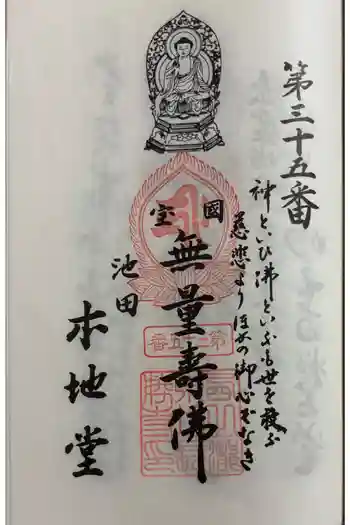 第三十五番
神といひ佛といふも世を救ふ
慈悲よりほかの御心ぞなき
國宝
無量壽佛
池田
本地堂